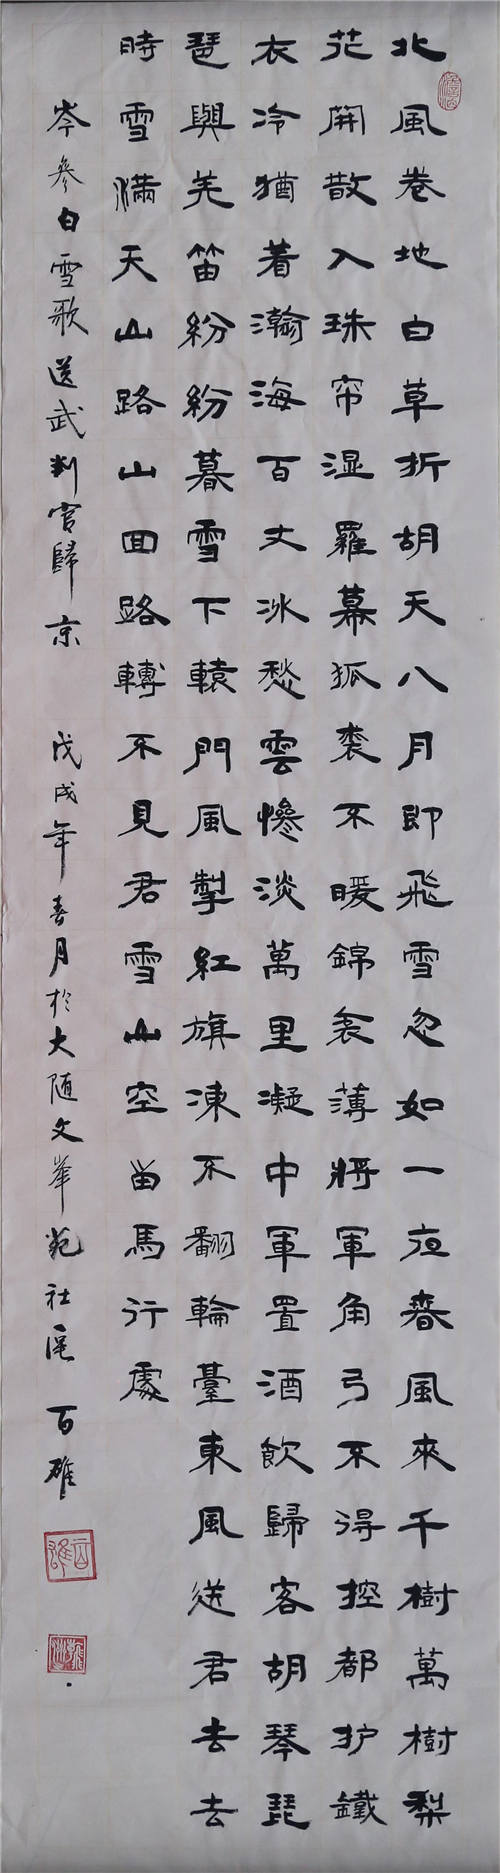 北風卷地白草折胡天八月即飛雪忽如一夜春風來千樹萬樹梨
花開散入珠帘湿羅幕狐裘不暖錦衾薄將軍角弓不得控都护鐵
衣冷猶着瀚海百丈冰愁雲慘淡萬里凝中軍置酒飲歸客胡琴琵
琶與羌笛紛紛暮雪下轅門風掣紅旗凍不翻輪臺東風送君去去
時雪滿天山路山回路轉不見君雪山空留馬行處
岑參白雪歌送武判官歸京 戊戌年春月於大随文峯苑社區 百雄